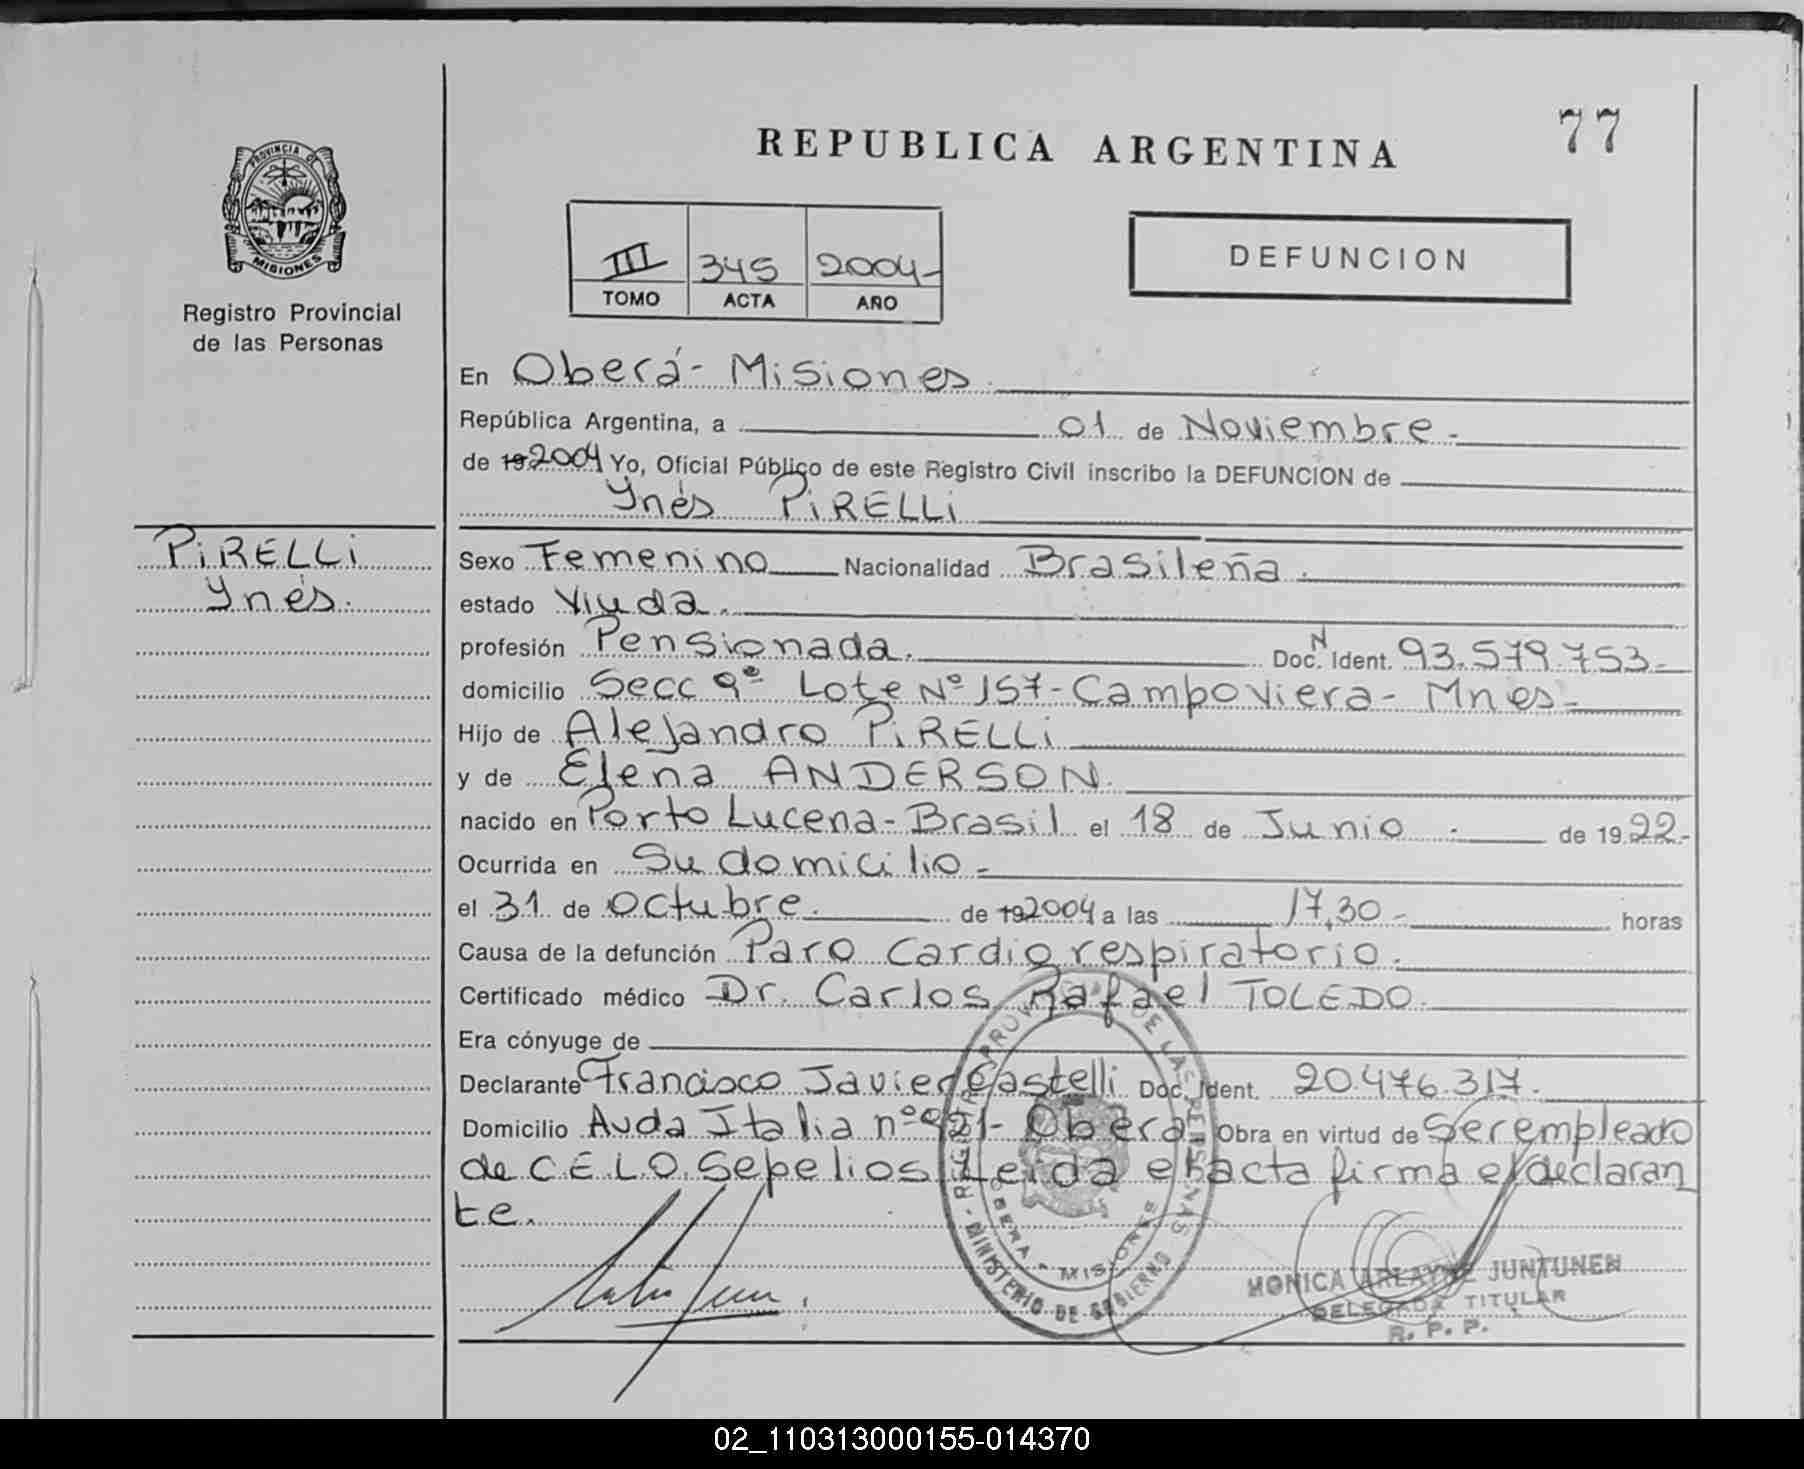 77
REPUBLICA ARGENTINA
PROVINCIA DE
MISIONES
Registro Provincial
de las Personas
III 345 2004-
TOMO ACTA AÑO
DEFUNCION
En Oberá- Misiones.
República Argentina, a 01 de Noviembre-
de 19 2004 Yo, Oficial Público de este Registro Civil inscribo la DEFUNCION de
Ynés PiRELLi
PiRELLi
Ynés.
Sexo Femenino Nacionalidad Brasileña.
estado Viuda.
profesión Pensionada. Doc. N Ident. 93.579.753-
domicilio Secc 9ª Lote Nº 157- Campo Viera- Mnes-
Hijo de Alejandro PiRELLi
y de Elena ANDERSON.
nacido en Porto Lucena- Brasil el 18 de Junio . de 19 22-
Ocurrida en Su domicilio-
el 31 de Octubre. de 19 2004 a las 17,30- horas
Causa de la defunción Paro Cardiorespiratorio.
Certificado médico Dr. Carlos Rafael TOLEDO.
Era cónyuge de
Declarante Francisco Javier Castelli Doc. Ident. 20.476.317.
Domicilio Avda Italia nº 921- Oberá Obra en virtud de Ser empleado
de C.E.L.O. Sepelios Leida el acta firma el declaran
te.
REGISTRO PROVINCIAL DE LAS PERSONAS
OBERA - MISIONES
- MINISTERIO DE GOBIERNO
MONICA ARLAYNE JUNTUNEN
DELEGADA TITULAR
R. P. P.
02_110313000155-014370